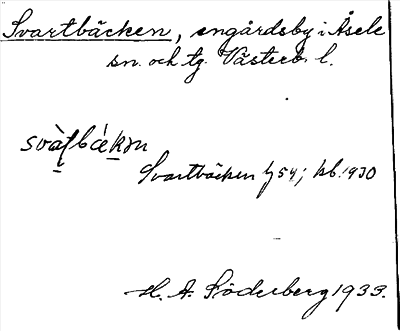 Svartbäcken, engårdsby i Åsele
sn. och tg. Västerb. l.
Svartbäcken ; kb. 1930
H. A. Söderberg 1933.